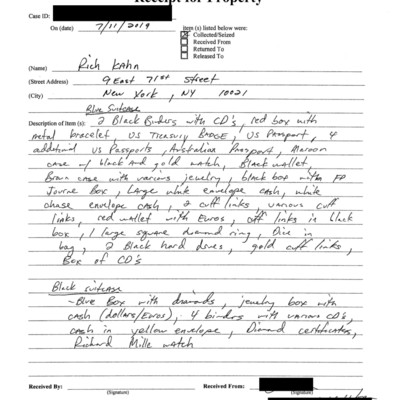 Receipt for Property
Case ID:
On (date) 7/11/2019 item(s) listed below were:
Collected/Seized
Received From
Returned To
Released To
(Name) Rich Kahn
(Street Address) 9 East 71st Street
(City) New York, NY 10021
Blue Suitcase
Description of Item(s): 2 Black Binders with CD's, red box with
metal bracelet, US Treasury Badge, US Passport, 4
additional US Passports, Australian Passport, Maroon
case w/ black and gold watch, Black wallet,
Brown case with various jewelry, black box with FP
Journe Box, Large white envelope cash, white
chase envelope cash, 2 cuff links, various cuff
links, red wallet with Euros, cuff links in black
box, 1 large square diamond ring, in
bag, 2 Black hard drives, gold cuff links,
Box of CD's
Black suitcase
- Blue Box with diamonds, jewelry box with
cash (dollars/Euros), 4 binders with various CD's,
cash in yellow envelope, Diamond certificates,
Richard Mille watch
Received By: Received From:
(Signature) (Signature)